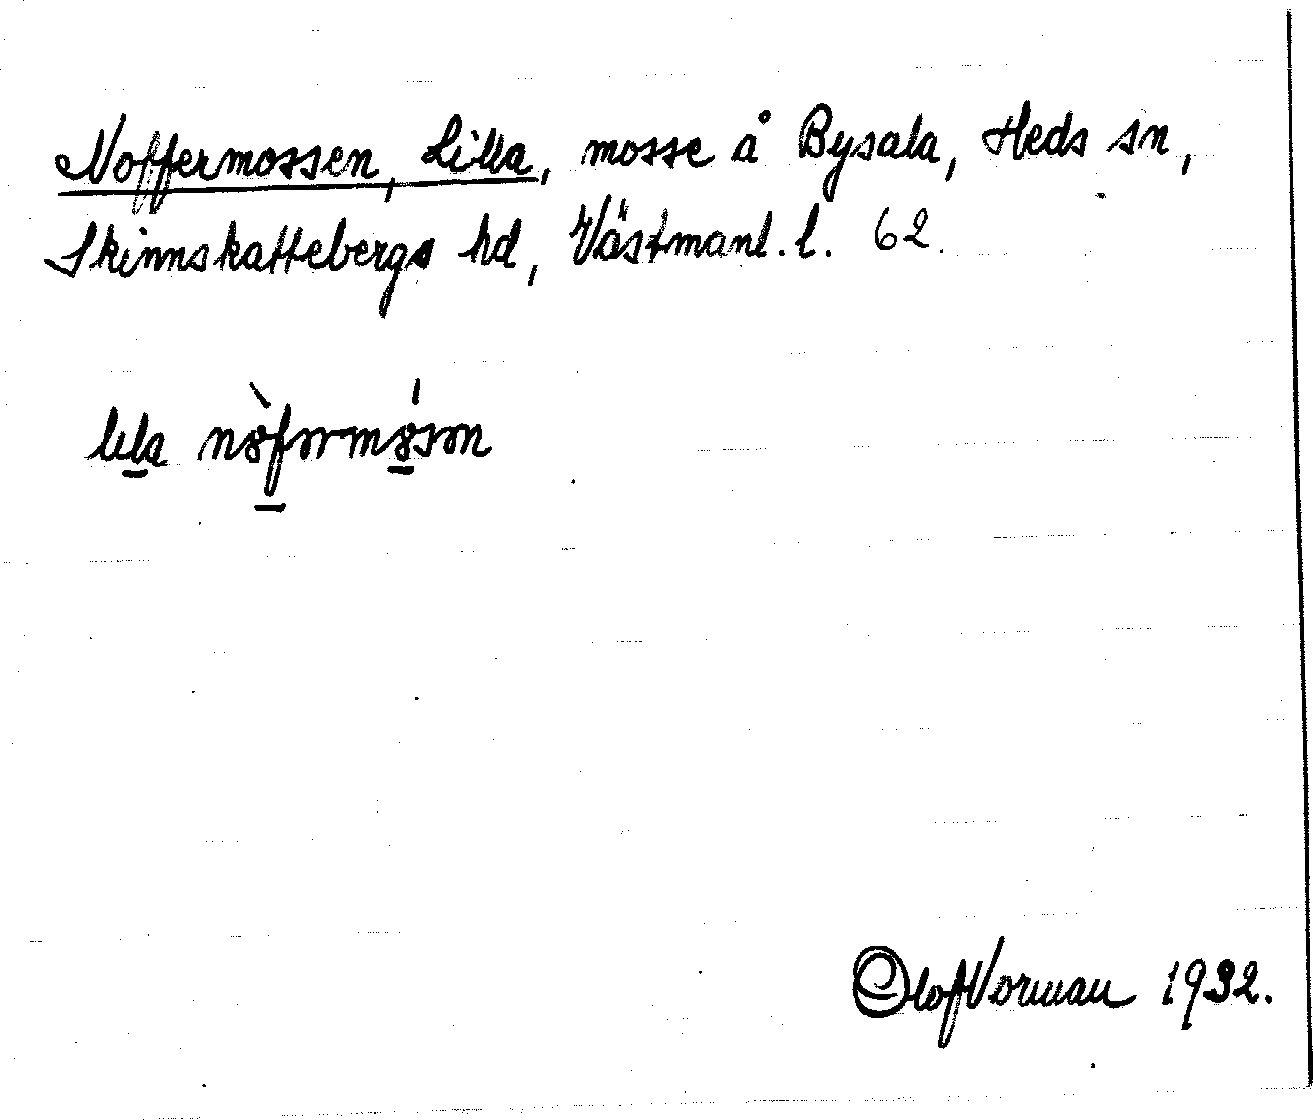 Noffermossen, Lilla, mosse å Bysala, Heds sn,
Skinnskattebergs hd, Västmanl. l. 62.
lıla
Olof Norman 1932.